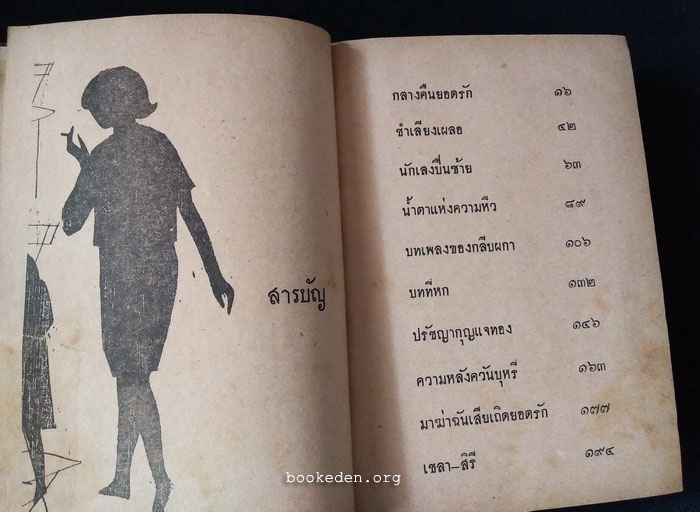 สารบัญ
กลางคืนยอดรัก ๑๖
ชำเลียงเผลอ ๔๒
นักเลงปืนซ้าย ๖๓
น้ำตาแห่งความหิว ๘๙
บทเพลงของกลีบผกา ๑๐๖
บทที่หก ๑๓๒
ปรัชญากุญแจทอง ๑๔๖
ความหลังควันบุหรี่ ๑๖๓
มาฆ่าฉันเสียเถิดยอดรัก ๑๗๗
เชลา-สิรี ๑๙๔
bookeden.org